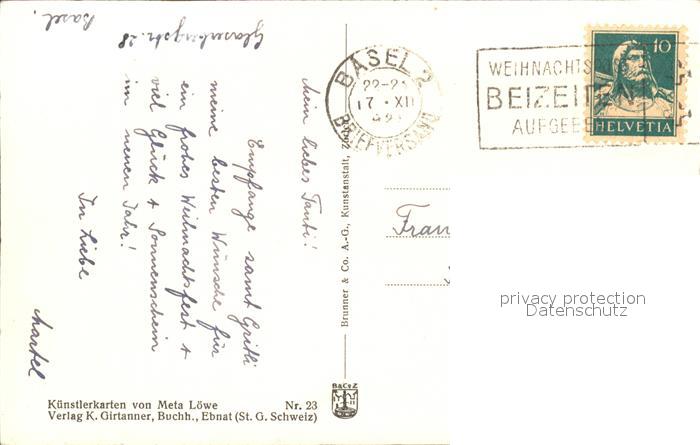 Basel.
Glaserbergstr. 28
Mein liebes Tanti!
Empfange samt Gritli
meine besten Wünsche für
ein frohes Weihnachtsfest +
viel Glück + Sonnenschein
im neuen Jahr!
In Liebe
Martel
Künstlerkarten von Meta Löwe Nr. 23
Verlag K. Girtanner, Buchh., Ebnat (St. G. Schweiz)
Brunner & Co. A.-G., Kunstanstalt,
B&C°Z
BASEL 2
17. XII
BRIEFVERSAND
WEIHNACHTS
BEIZEITEN
AUFGEBE
10
HELVETIA
Frau
privacy protection
Datenschutz